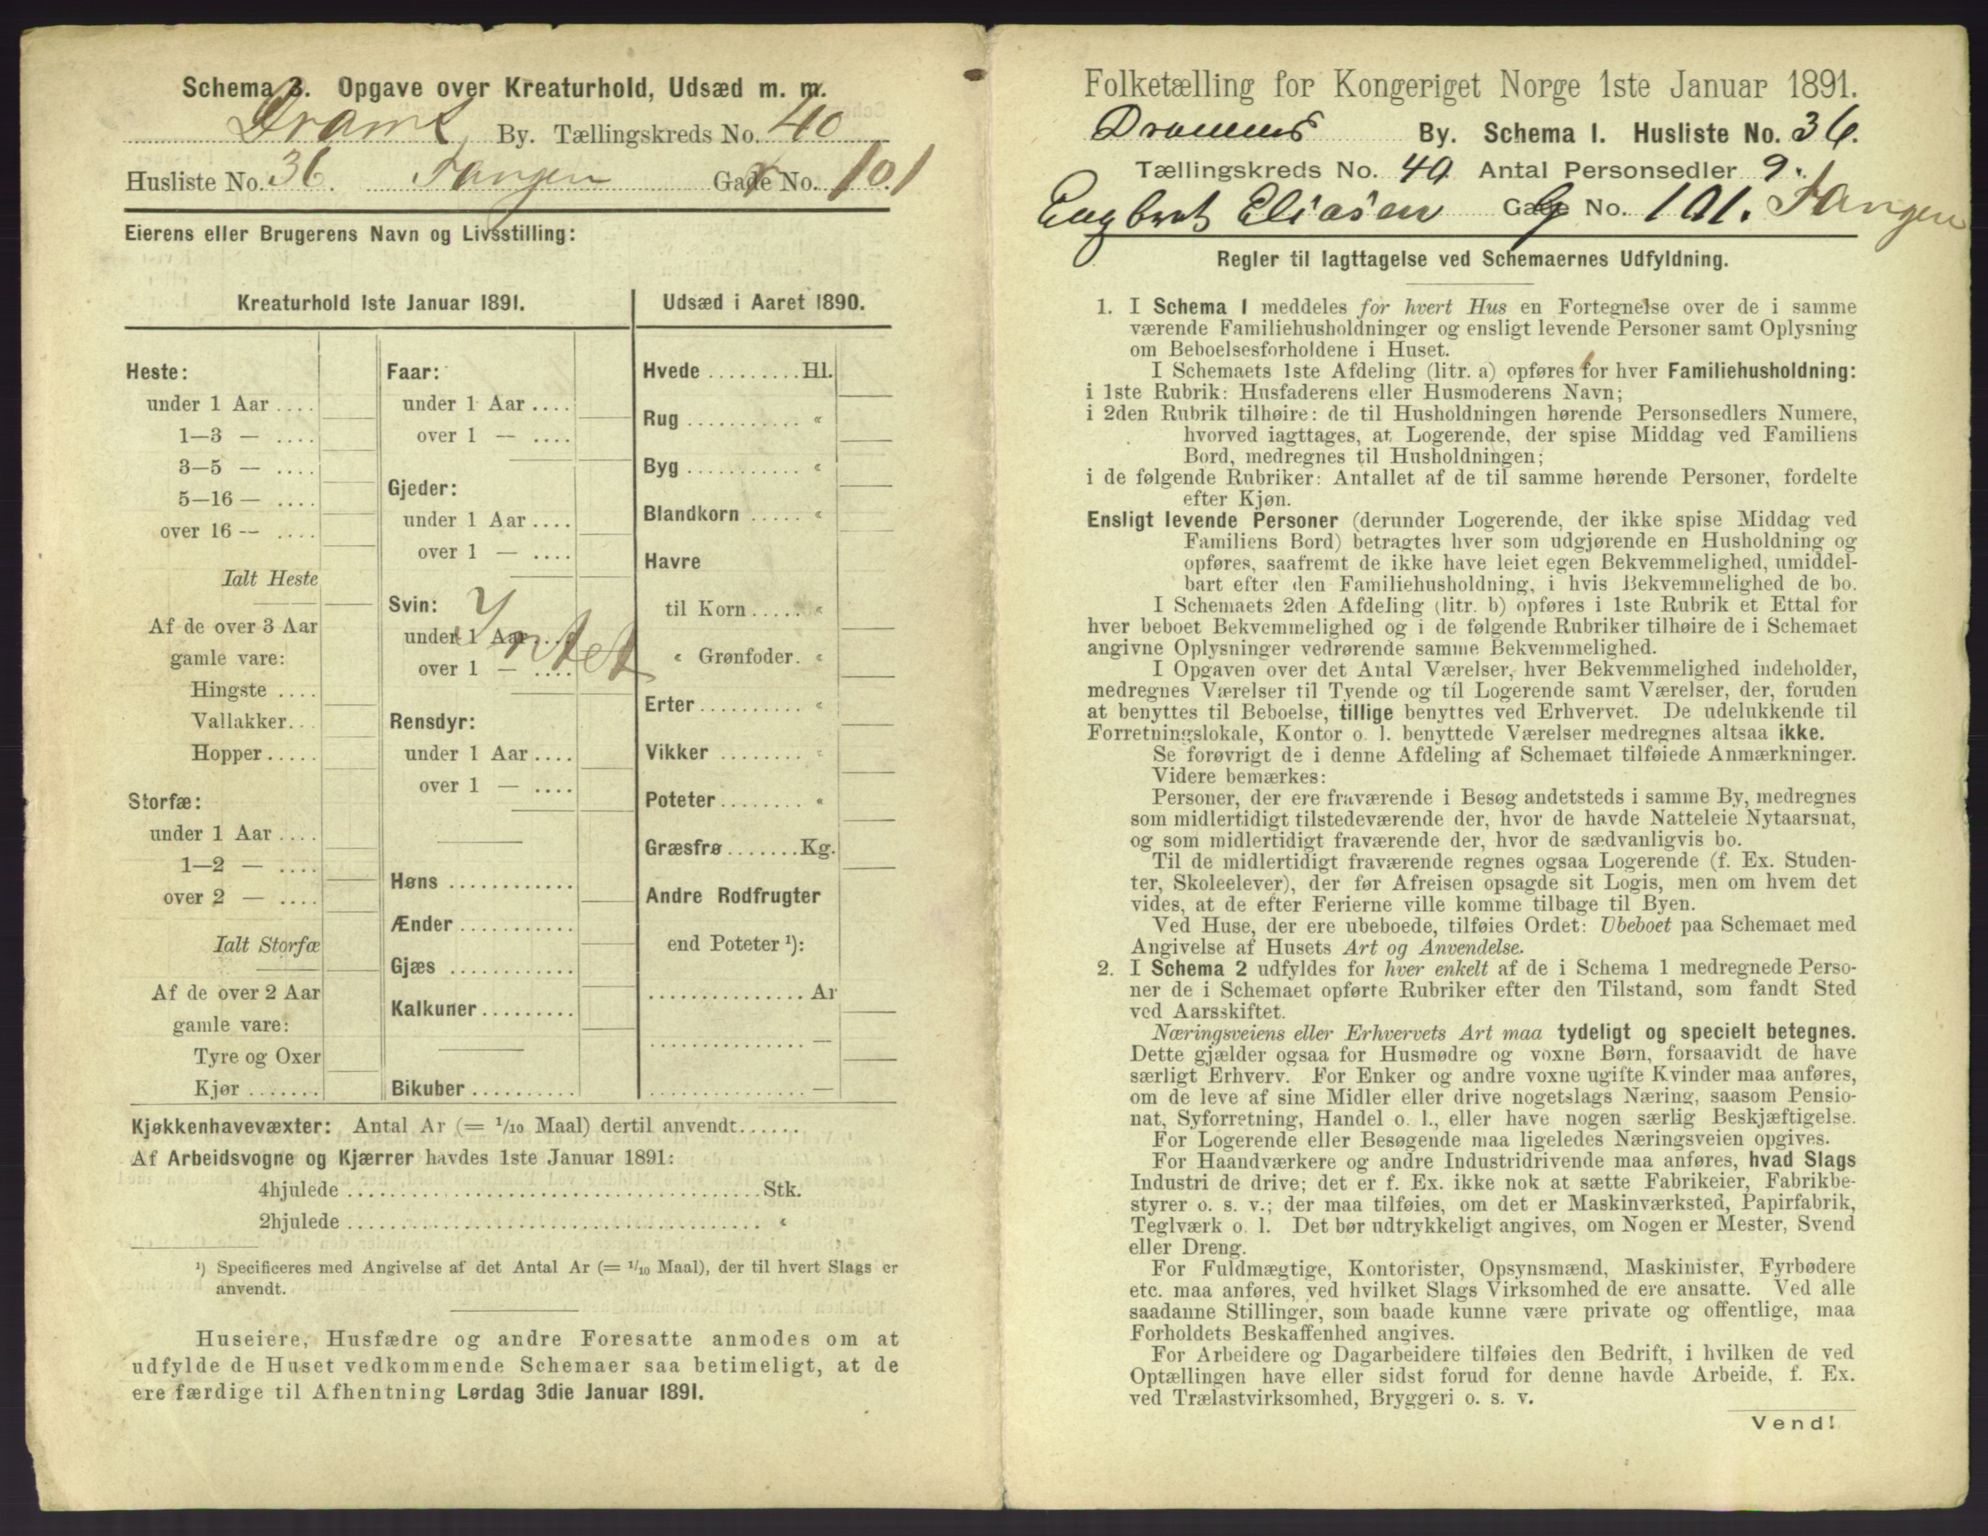 Schema 3. Opgave over Kreaturhold, Udsæd m. m.
Drams By. Tællingskreds No. 40
Husliste No. 36. Tangen Gade No. 101
Eierens eller Brugerens Navn og Livsstilling:
Kreaturhold 1ste Januar 1891.
Heste:
under 1 Aar ....
1—3 — ....
3—5 — ....
5—16 — ....
over 16 -- ....
Ialt Heste
Af de over 3 Aar
gamle vare:
Hingste ....
Vallakker...
Hopper.....
Storfæ:
under 1 Aar ....
1—2 — ....
over 2 — ....
Ialt Storfæ
Af de over 2 Aar
gamle vare:
Tyre og Oxer
Kjør .......
Faar:
under 1 Aar ....
over 1 — ....
Gjeder:
under 1 Aar ....
over 1 — ....
Svin:
under 1 Aar ....
over 1 — ....
Intet
Rensdyr:
under 1 Aar ....
over 1 — ....
Høns ............
Ænder ...........
Gjæs ............
Kalkuner.........
Bikuber ..........
Udsæd i Aaret 1890.
Hvede .........Hl.
Rug ........... «
Byg ........... «
Blandkorn ..... «
Havre
til Korn ..... «
« Grønfoder. «
Erter.......... «
Vikker ........ «
Poteter........ «
Græsfrø .......Kg.
Andre Rodfrugter
end Poteter ¹):
............... Ar
............... —
............... —
Kjøkkenhavevæxter: Antal Ar (= 1/10 Maal) dertil anvendt......
Af Arbeidsvogne og Kjærrer havdes 1ste Januar 1891:
4hjulede .......................................Stk.
2hjulede ....................................... «
¹) Specificeres med Angivelse af det Antal Ar (= 1/10 Maal), der til hvert Slags er
anvendt.
Huseiere, Husfædre og andre Foresatte anmodes om at
udfylde de Huset vedkommende Schemaer saa betimeligt, at de
ere færdige til Afhentning Lørdag 3die Januar 1891.
Folketælling for Kongeriget Norge 1ste Januar 1891.
Drammens By. Schema 1. Husliste No. 36.
Tællingskreds No. 40 Antal Personsedler 9.
Engbret Eliasen Gade G No. 101. Tangen
Regler til Iagttagelse ved Schemaernes Udfyldning.
1. I Schema 1 meddeles for hvert Hus en Fortegnelse over de i samme
værende Familiehusholdninger og ensligt levende Personer samt Oplysning
om Beboelsesforholdene i Huset.
I Schemaets 1ste Afdeling (litr. a) opføres for hver Familiehusholdning:
i 1ste Rubrik: Husfaderens eller Husmoderens Navn;
i 2den Rubrik tilhøire: de til Husholdningen hørende Personsedlers Numere,
hvorved iagttages, at Logerende, der spise Middag ved Familiens
Bord, medregnes til Husholdningen;
i de følgende Rubriker: Antallet af de til samme hørende Personer, fordelte
efter Kjøn.
Ensligt levende Personer (derunder Logerende, der ikke spise Middag ved
Familiens Bord) betragtes hver som udgjørende en Husholdning og
opføres, saafremt de ikke have leiet egen Bekvemmelighed, umiddel-
bart efter den Familiehusholdning, i hvis Bekvemmelighed de bo.
I Schemaets 2den Afdeling (litr. b) opføres i 1ste Rubrik et Ettal for
hver beboet Bekvemmelighed og i de følgende Rubriker tilhøire de i Schemaet
angivne Oplysninger vedrørende samme Bekvemmelighed.
I Opgaven over det Antal Værelser, hver Bekvemmelighed indeholder,
medregnes Værelser til Tyende og til Logerende samt Værelser, der, foruden
at benyttes til Beboelse, tillige benyttes ved Erhvervet. De udelukkende til
Forretningslokale, Kontor o. l. benyttede Værelser medregnes altsaa ikke.
Se forøvrigt de i denne Afdeling af Schemaet tilføiede Anmærkninger.
Videre bemærkes:
Personer, der ere fraværende i Besøg andetsteds i samme By, medregnes
som midlertidigt tilstedeværende der, hvor de havde Natteleie Nytaarsnat,
og som midlertidigt fraværende der, hvor de sædvanligvis bo.
Til de midlertidigt fraværende regnes ogsaa Logerende (f. Ex. Studen-
ter, Skoleelever), der før Afreisen opsagde sit Logis, men om hvem det
vides, at de efter Ferierne ville komme tilbage til Byen.
Ved Huse, der ere ubeboede, tilføies Ordet: Ubeboet paa Schemaet med
Angivelse af Husets Art og Anvendelse.
2. I Schema 2 udfyldes for hver enkelt af de i Schema 1 medregnede Perso-
ner de i Schemaet opførte Rubriker efter den Tilstand, som fandt Sted
ved Aarsskiftet.
Næringsveiens eller Erhvervets Art maa tydeligt og specielt betegnes.
Dette gjælder ogsaa for Husmødre og voxne Børn, forsaavidt de have
særligt Erhverv. For Enker og andre voxne ugifte Kvinder maa anføres,
om de leve af sine Midler eller drive nogetslags Næring, saasom Pensio-
nat, Syforretning, Handel o. l., eller have nogen særlig Beskjæftigelse.
For Logerende eller Besøgende maa ligeledes Næringsveien opgives.
For Haandværkere og andre Industridrivende maa anføres, hvad Slags
Industri de drive; det er f. Ex. ikke nok at sætte Fabrikeier, Fabrikbe-
styrer o. s. v.; der maa tilføies, om det er Maskinværksted, Papirfabrik,
Teglværk o. l. Det bør udtrykkeligt angives, om Nogen er Mester, Svend
eller Dreng.
For Fuldmægtige, Kontorister, Opsynsmænd, Maskinister, Fyrbødere
etc. maa anføres, ved hvilket Slags Virksomhed de ere ansatte. Ved alle
saadanne Stillinger, som baade kunne være private og offentlige, maa
Forholdets Beskaffenhed angives.
For Arbeidere og Dagarbeidere tilføies den Bedrift, i hvilken de ved
Optællingen have eller sidst forud for denne havde Arbeide, f. Ex.
ved Trælastvirksomhed, Bryggeri o. s. v.
Vend!